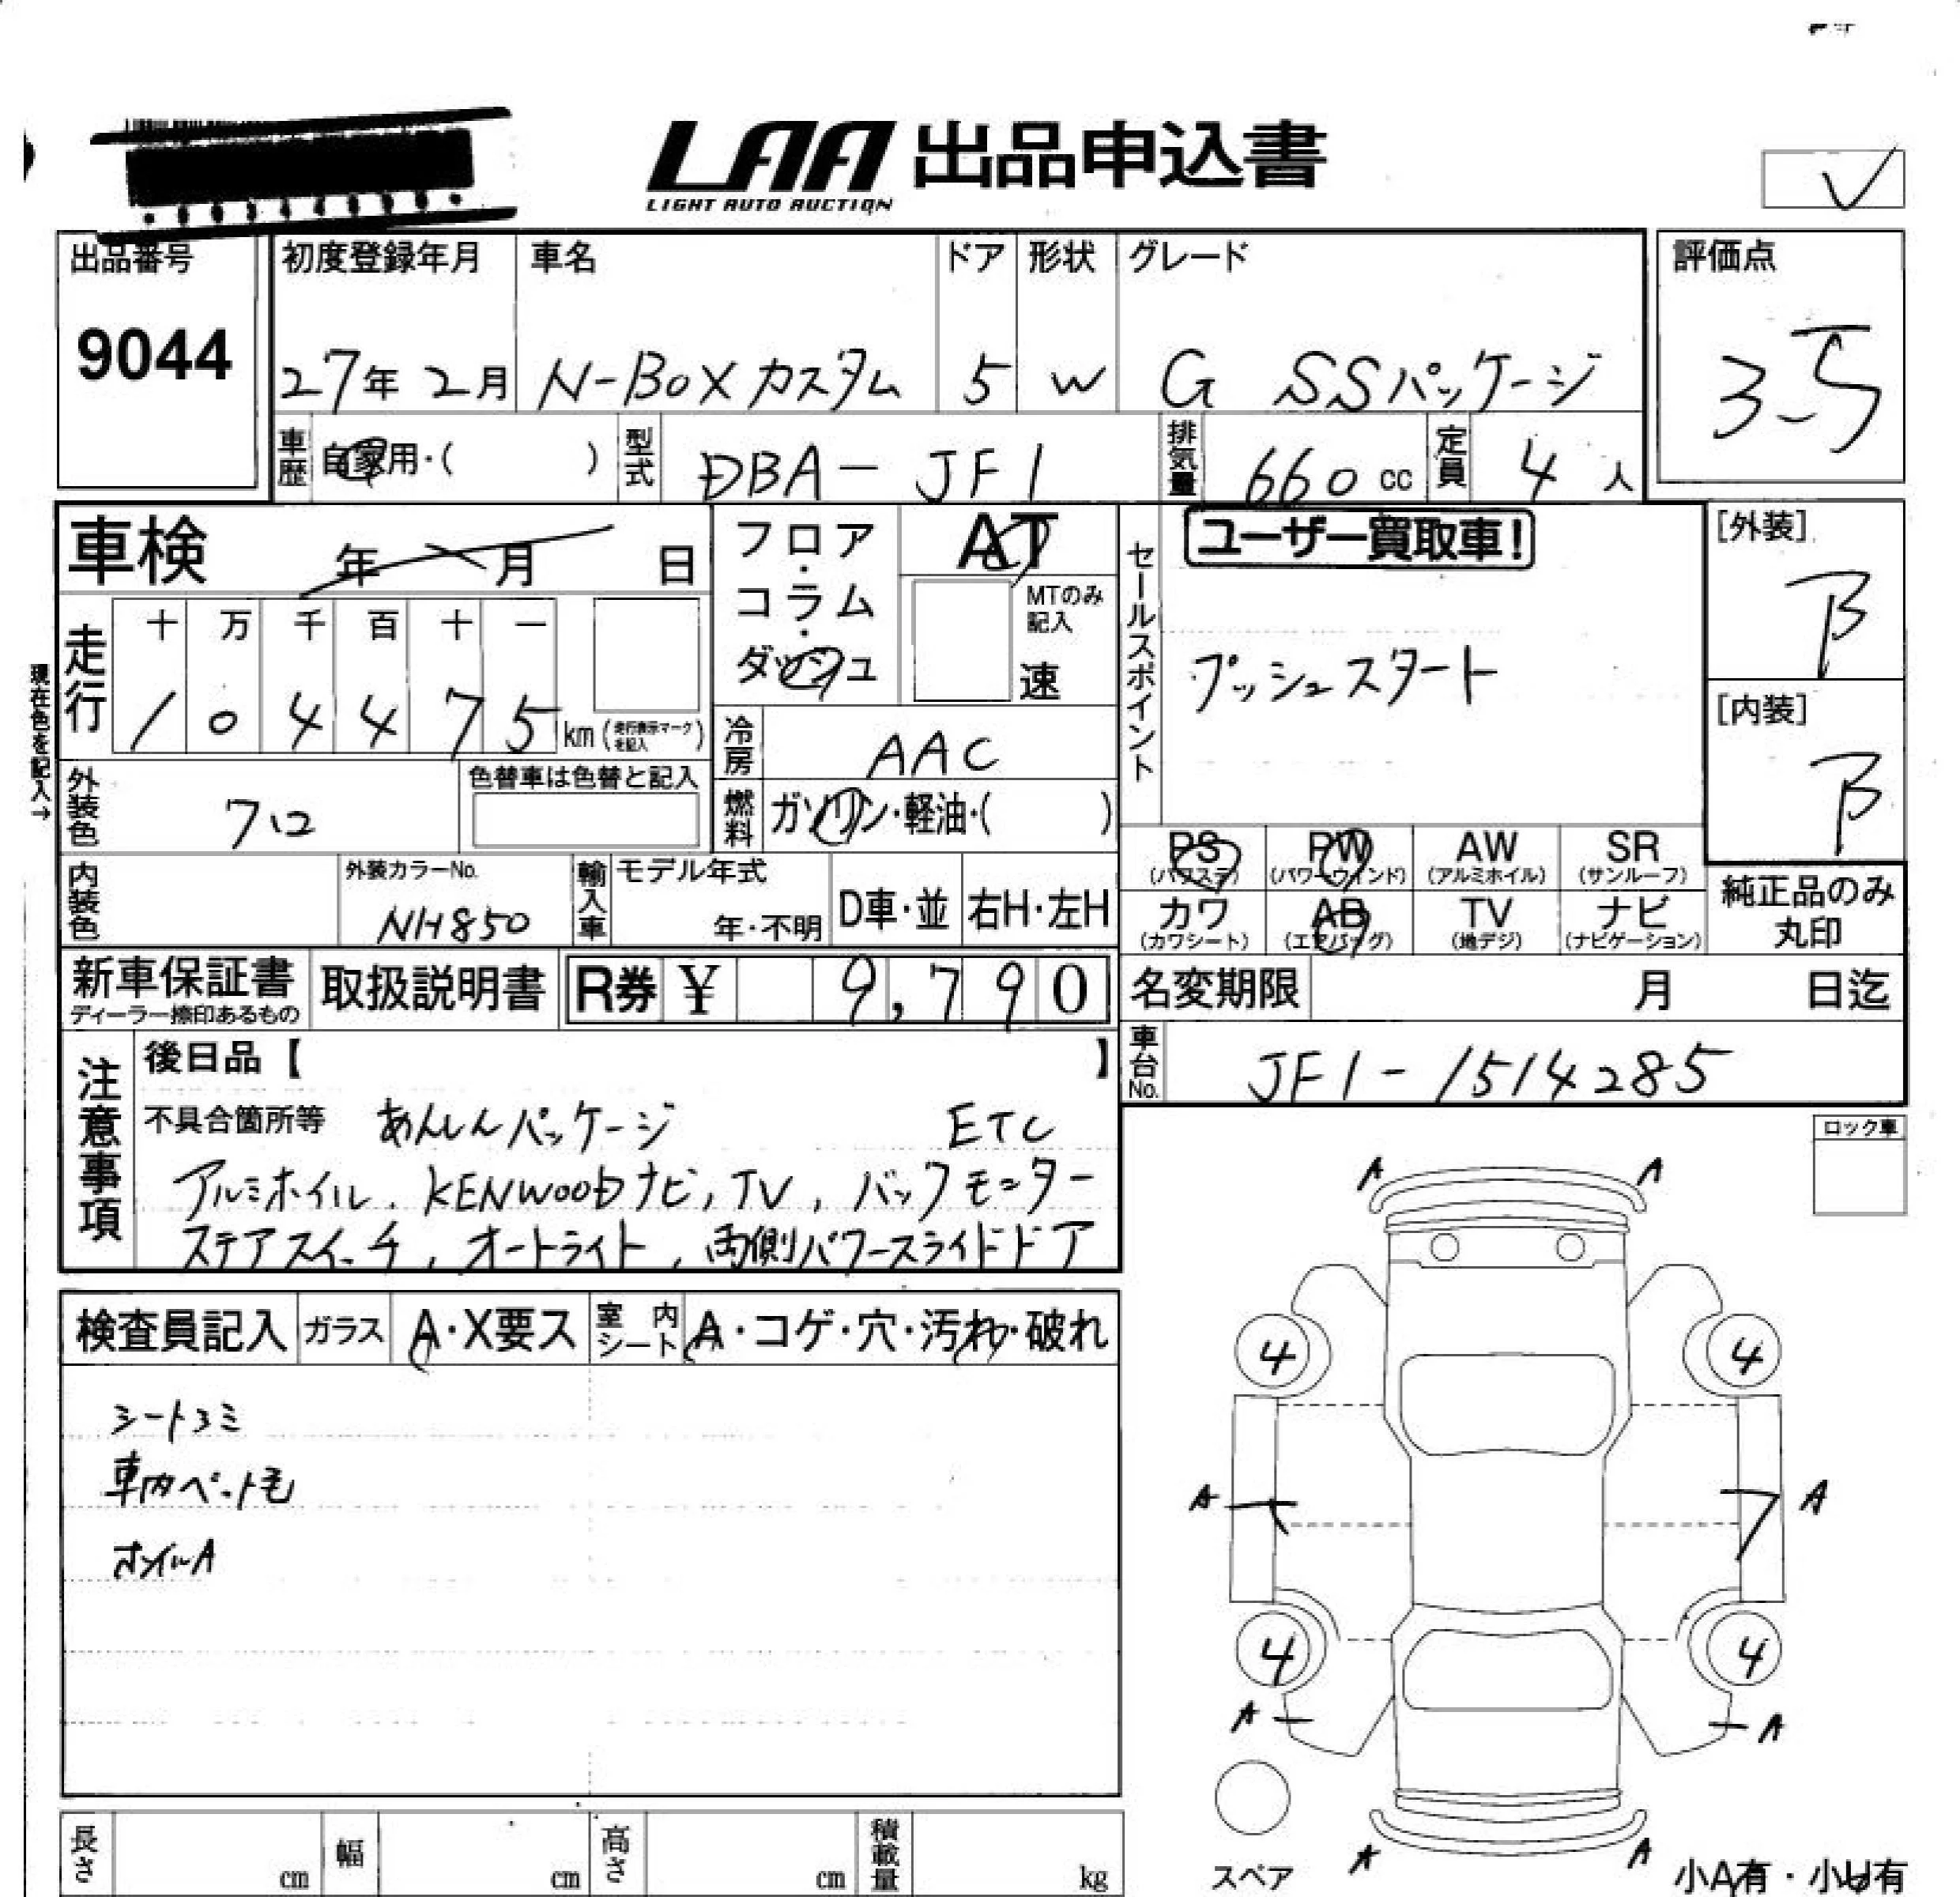 LAA 出品申込書
LIGHT AUTO AUCTION
出品番号 初度登録年月 車名 ドア 形状 グレード 評価点
9044 27年 2月 N-BOXカスタム 5 W G SSパッケージ 3.5
車歴 自家用・( ) 型式 DBA-JF1 排気量 660 cc 定員 4 人
車検 年 月 日
フロア・コラム・ダッシュ
AT
MTのみ記入
速
セールスポイント
ユーザー買取車!
プッシュスタート
[外装]
B
[内装]
B
現在色を記入→
走行 十 万 千 百 十 一
1 0 4 4 7 5 km (走行表示マークを記入)
冷房 AAC
外装色 クロ 色替車は色替と記入
燃料 ガソリン・軽油・( )
PS (パワステ) PW (パワーウインド) AW (アルミホイル) SR (サンルーフ)
カワ (カワシート) AB (エアバッグ) TV (地デジ) ナビ (ナビゲーション)
純正品のみ丸印
内装色 外装カラーNo. NH850 輸入車 モデル年式 年・不明 D車・並 右H・左H
新車保証書 ディーラー捺印あるもの 取扱説明書 R券 ¥ 9,790 名変期限 月 日迄
車台No. JF1-1514285
注意事項
後日品【 】
不具合箇所等 あんしんパッケージ ETC
アルミホイル, KENWOODナビ, TV, バックモニター
ステアスイッチ, オートライト, 両側パワースライドドア
ロック車
検査員記入 ガラス A・X要ス 室内シート A・コゲ・穴・汚れ・破れ
シートコミ
車内ペット毛
ホイルA
A A
4 4
A A
4 4
A A
A A
スペア
小A有・小U有
長さ cm 幅 cm 高さ cm 積載量 kg